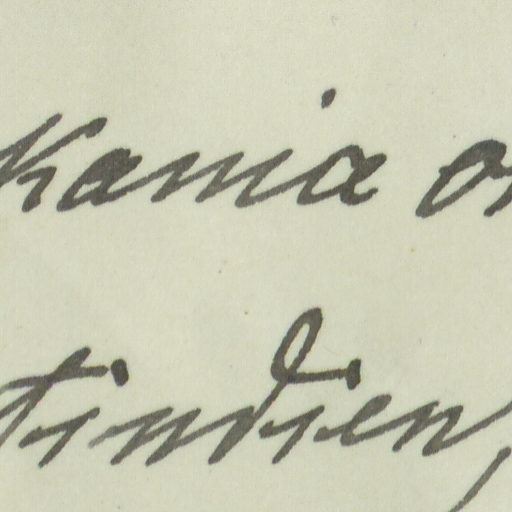 kania o
tindien,